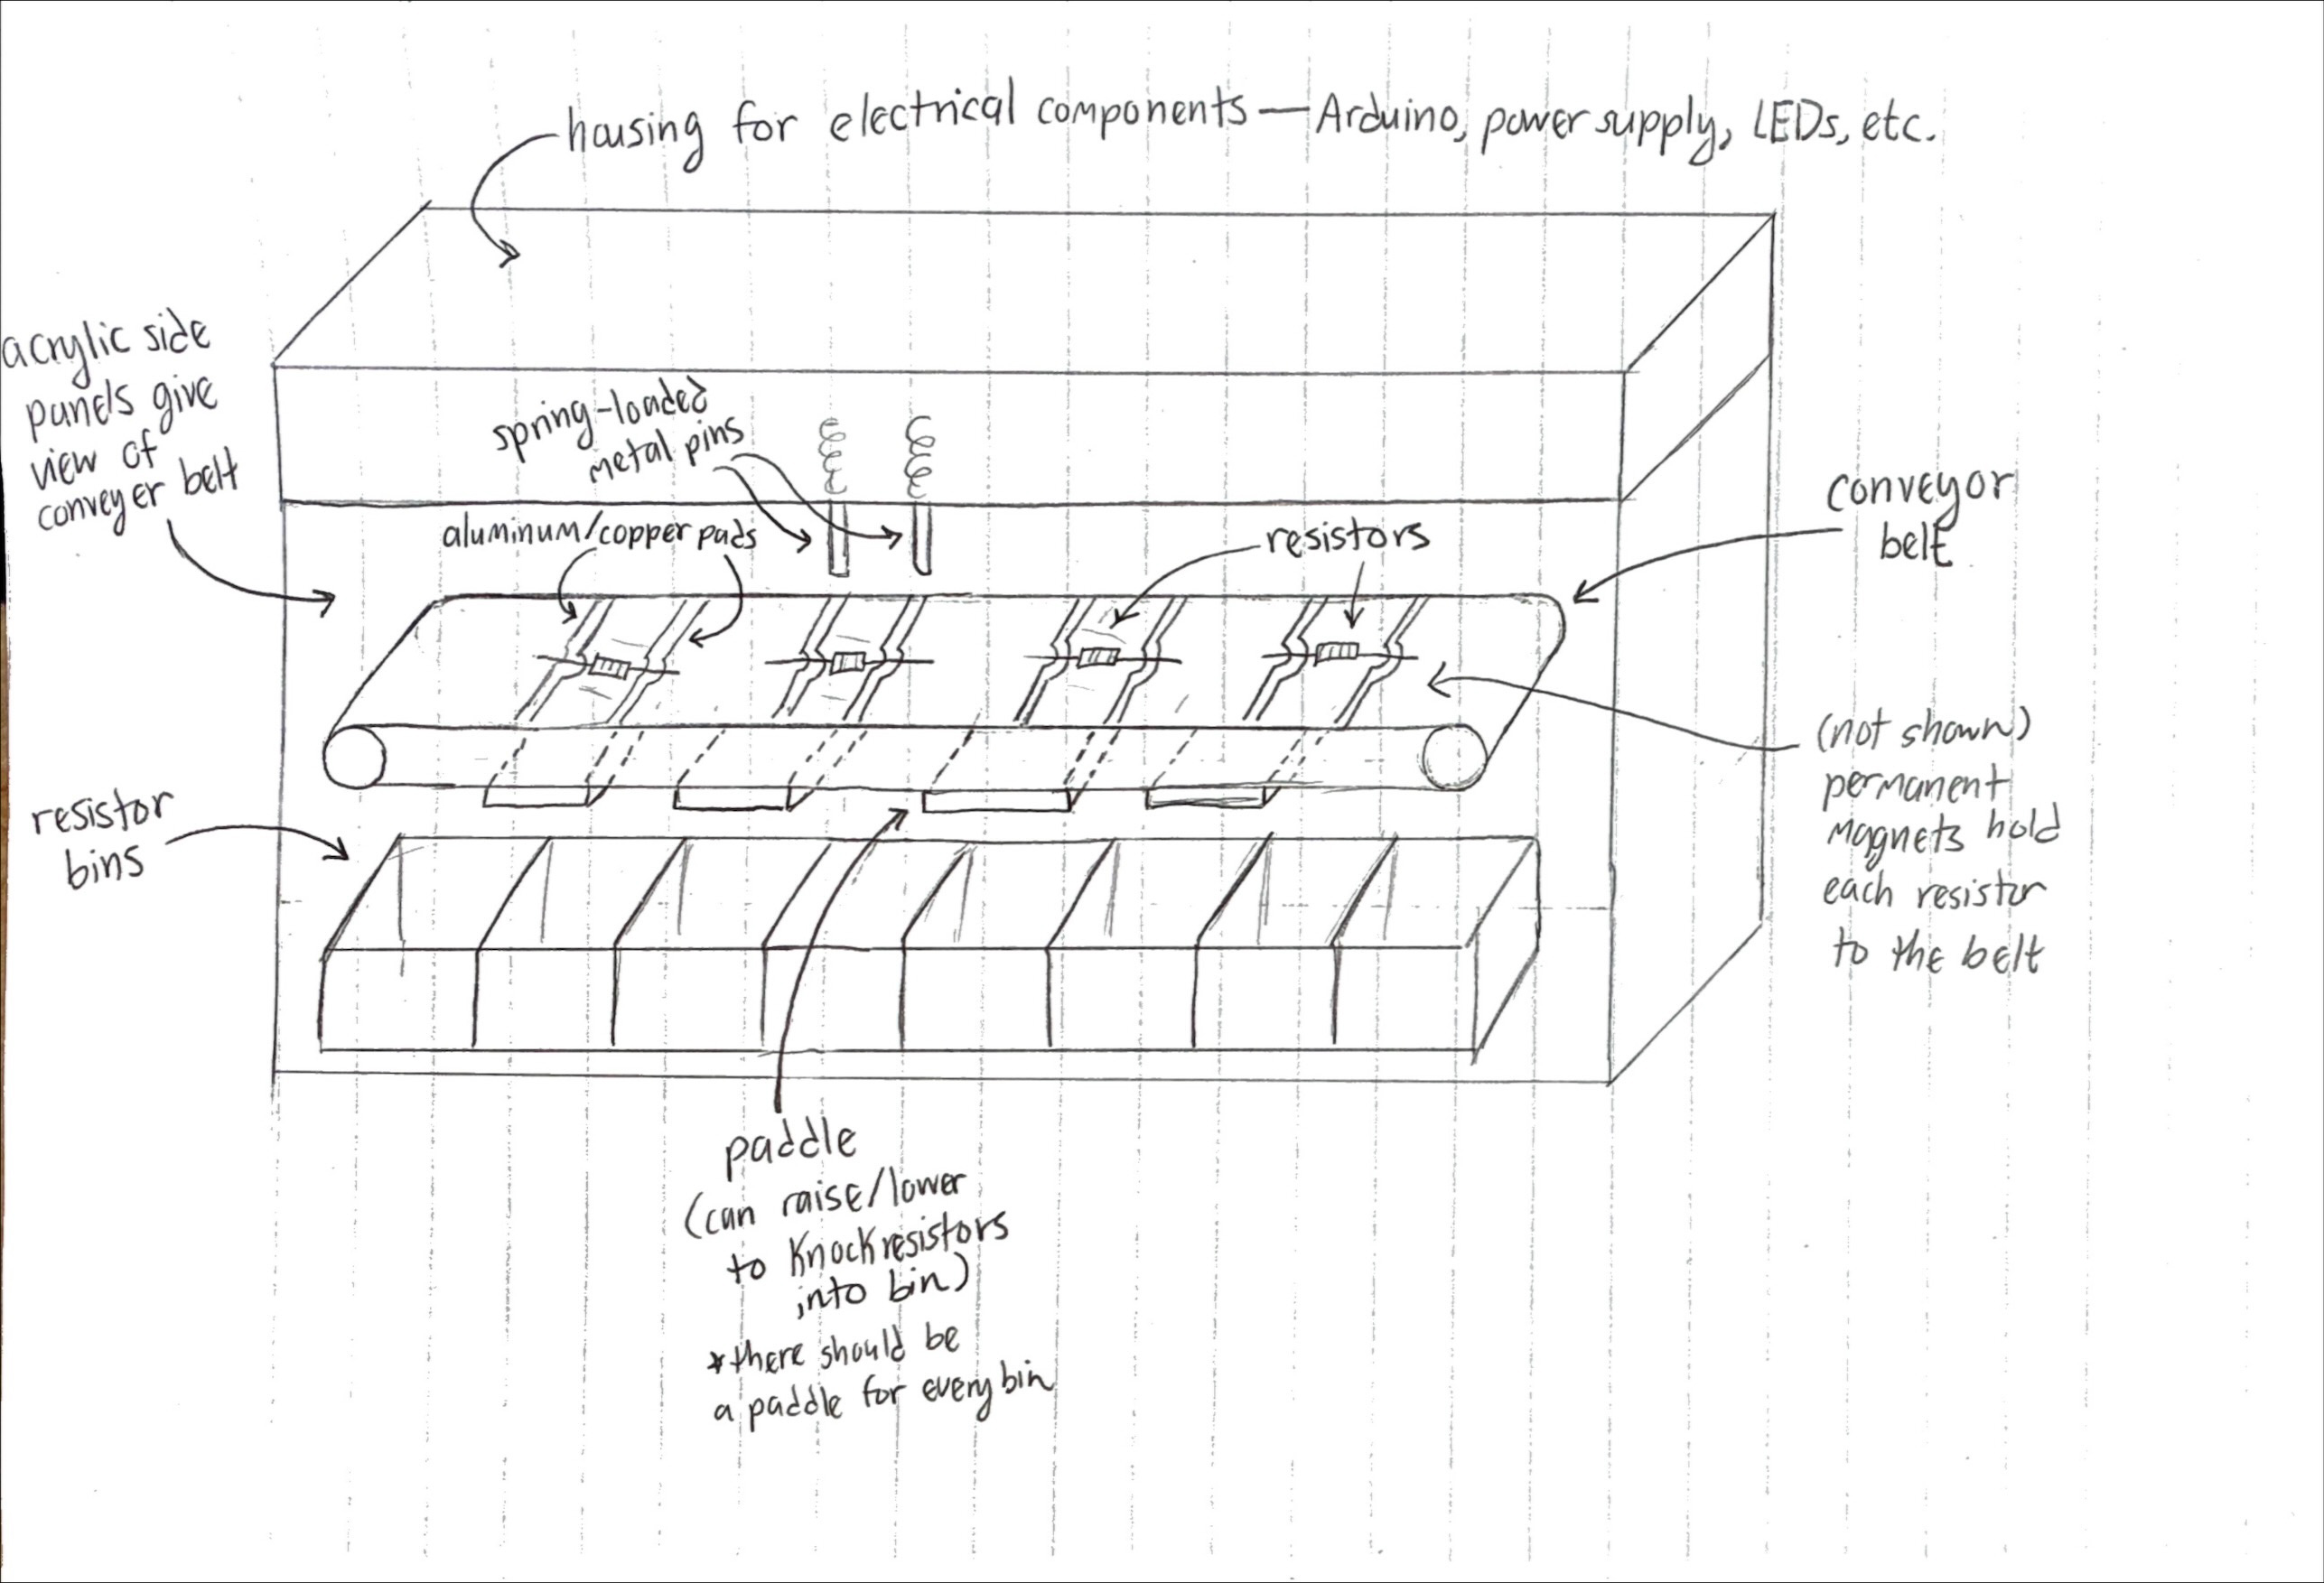 housing for electrical components — Arduino, power supply, LEDs, etc.
acrylic side
panels give
view of
conveyer belt
spring-loaded
metal pins
aluminum/copper pads
resistors
conveyor
belt
(not shown)
permanent
magnets hold
each resistor
to the belt
resistor
bins
paddle
(can raise/lower
to knock resistors
into bin)
*there should be
a paddle for every bin